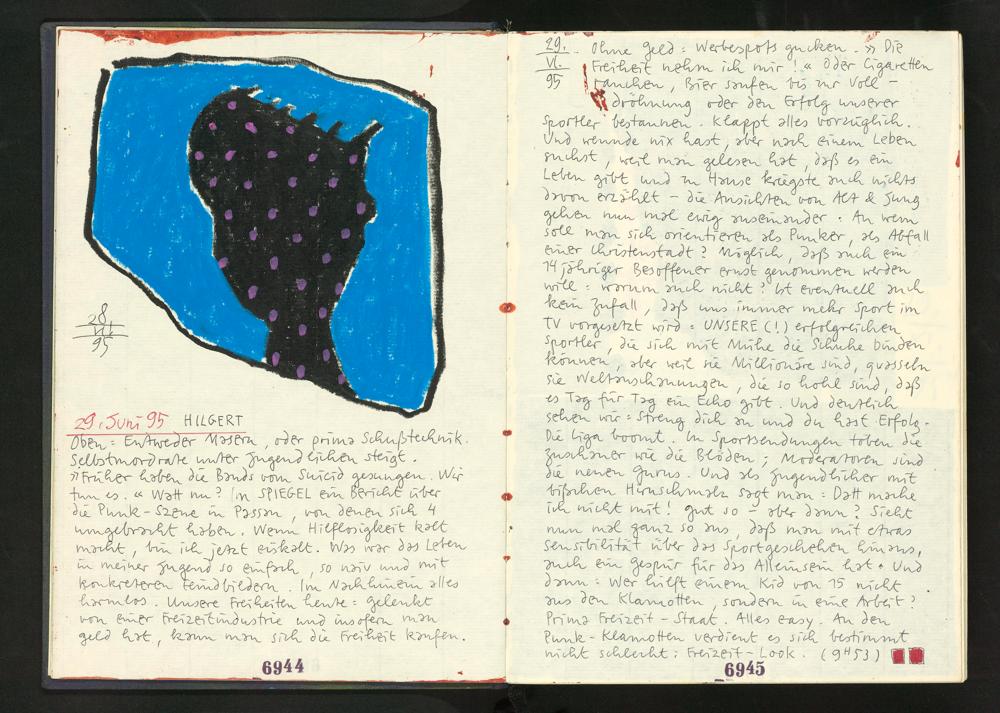 28.
VI.
95
29. Juni 95 HILGERT
Oben: Entweder Masern, oder prima Schußtechnik.
Selbstmordrate unter Jugendlichen steigt.
»Früher haben die Bands vom Suicid gesungen. Wir
tun es.« Watt nu? Im SPIEGEL ein Bericht über
die Punk-Szene in Passau, von denen sich 4
umgebracht haben. Wenn Hilflosigkeit kalt
macht, bin ich jetzt eiskalt. Was war das Leben
in meiner Jugend so einfach, so naiv und mit
konkreteren Feindbildern. Im Nachhinein alles
harmlos. Unsere Freiheiten heute: gelenkt
von einer Freizeitindustrie und insofern man
Geld hat, kann man sich die Freiheit kaufen.
6944
29.
VI.
95
Ohne Geld: Werbespots gucken. »Die
Freiheit nehm ich mir!« Oder Cigaretten
rauchen, Bier saufen bis zur Voll-
dröhnung oder den Erfolg unserer
Sportler bestaunen. Klappt alles vorzüglich.
Und wennde nix hast, aber nach einem Leben
suchst, weil man gelesen hat, daß es ein
Leben gibt und zu Hause kriegste auch nichts
davon erzählt - die Ansichten von Alt & Jung
gehen nun mal ewig auseinander. An wem
soll man sich orientieren als Punker, als Abfall
einer Christenstadt? Möglich, daß auch ein
14jähriger Besoffener ernst genommen werden
will: warum auch nicht? Ist eventuell auch
kein Zufall, daß uns immer mehr Sport im
TV vorgesetzt wird: UNSERE (!) erfolgreichen
Sportler, die sich mit Mühe die Schuhe binden
können, aber weil sie Millionäre sind, quasseln
sie Weltanschauungen, die so hohl sind, daß
es Tag für Tag ein Echo gibt. Und deutlich
sehen wir: Streng dich an und du hast Erfolg.
Die Liga boomt. In Sportsendungen toben die
Zuschauer wie die Blöden; Moderatoren sind
die neuen Gurus. Und als Jugendlicher mit
bißchen Hirnschmalz sagt man: Datt mache
ich nicht mit! Gut so - aber dann? Sieht
nun mal ganz so aus, daß man mit etwas
Sensibilität über das Sportgeschehen hinaus,
auch ein Gespür für das Alleinsein hat. Und
dann: Wer hilft einem Kid von 15 nicht
aus den Klamotten, sondern in eine Arbeit?
Prima Freizeit-Staat. Alles easy. An den
Punk-Klamotten verdient es sich bestimmt
nicht schlecht: Freizeit-Look. (9H53)
6945